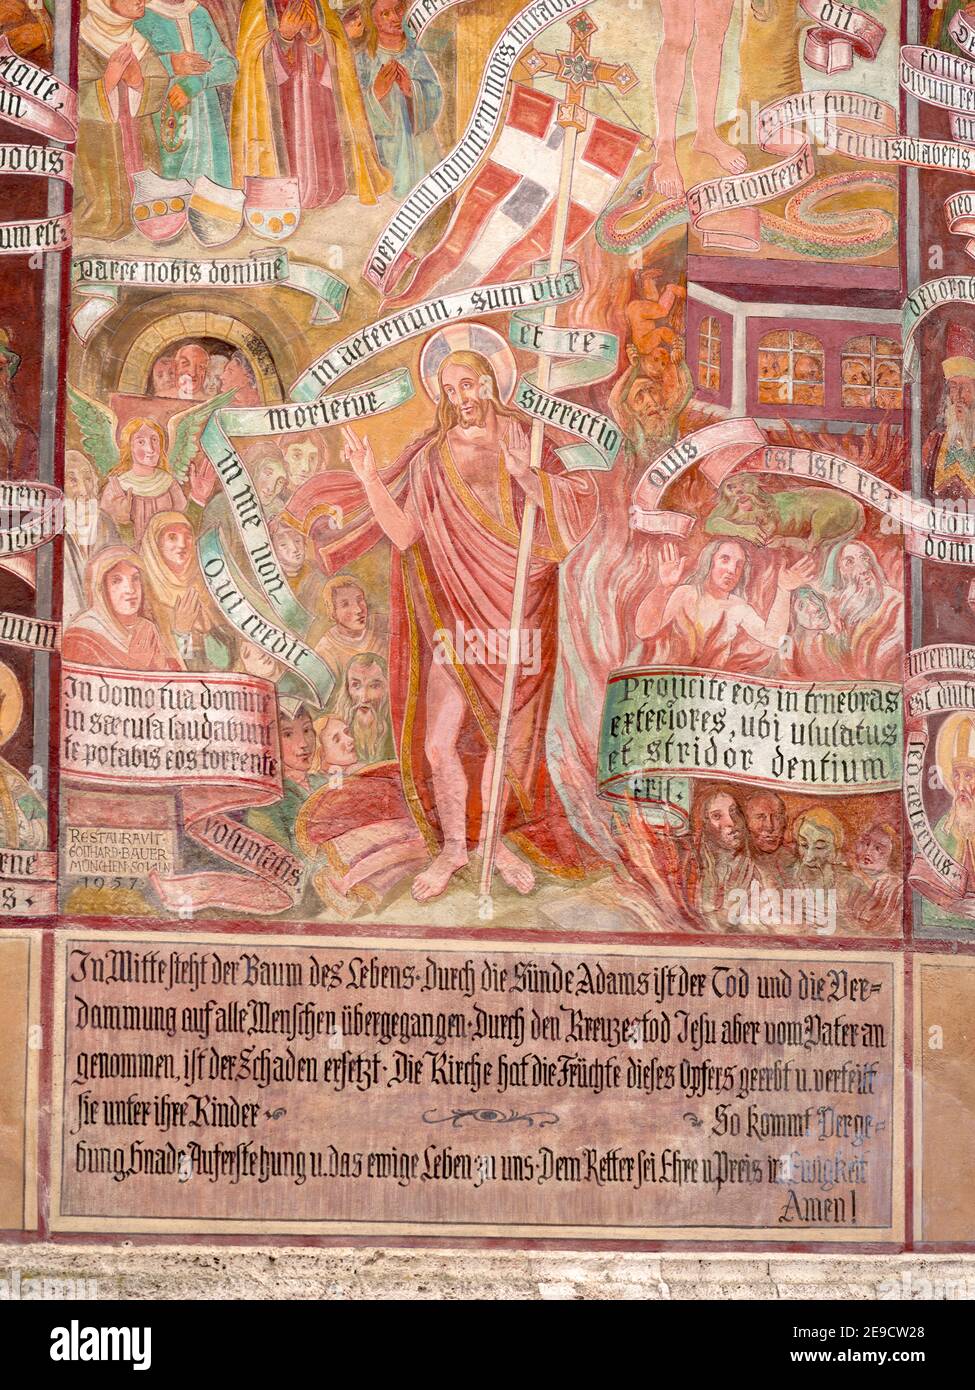 Parce nobis domine
per unum hominem mors
in aeternum, sum vita
et re-
surrectio
morietur
in me non
Qui credit
Ipsa conteret
nobis
um est
Quis
est iste rex
In domo tua domine
in saecula laudabunt
te potabis eos torrente
voluptatis
Proiicite eos in tenebras
exteriores, ubi ululatus
et stridor dentium
RESTAURAVIT
GOTTHARD·BAUER
MÜNCHEN-SOLLN
1957·
In Mitte steht der Baum des Lebens· Durch die Sünde Adams ist der Tod und die Ver=
dammung auf alle Menschen übergegangen· Durch den Kreuzestod Jesu aber vom Vater an
genommen, ist der Schaden ersetzt· Die Kirche hat die Früchte dieses Opfers geerbt u. verteilt
sie unter ihre Kinder· So kommt Verge=
bung, Gnade, Auferstehung u. das ewige Leben zu uns· Dem Retter sei Ehre u Preis in Ewigkeit
Amen!
alamy
Image ID: 2E9CW28
www.alamy.com